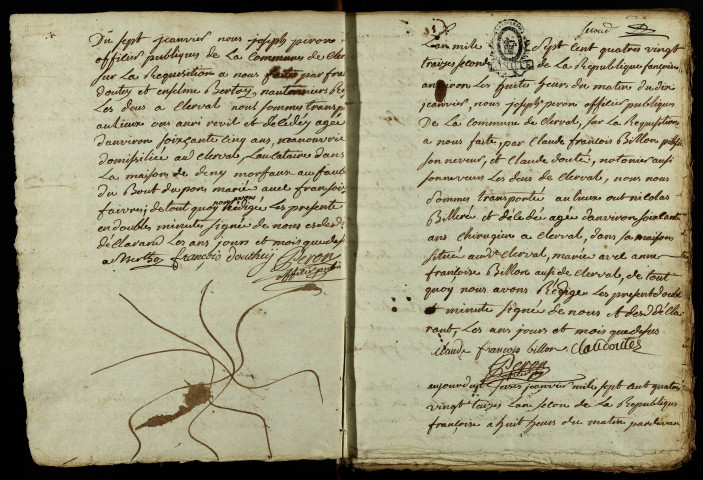 Du sept jeanvier nous joseph peron
officier publiques de La Commune de Cler
sur La Requisition a nous faite par fra
doutey et enselme Bertoz,
Les deus a Clerval nous sommes transp
autieux ous anri revit et deledés agée
d'anviron soixçante cinq ans, manouvrie
domisiliée au Clerval, Laucataire dans
La maison de deny morfaux au faub
du Bout du pons mariée avec fransois
faivres; de tout quoy nous avons Redigé Les presente
en doubles minute signée de nous et des d.
declarand Les ans jours et mois que des
a Bertoz françois douthey Peron
officié public
Lan mille Sept cent quatres vingt
traizes second de La Republique françoise
anviron Les huites heurs du matins du dix
jeanvier, nous joseph peron officier publiques
De La commune de Clerval, sur La Requisition
a nous faite, par Claude françois Billon
et Claude doute, notonier ausi
Les deus de Clerval, nous nous
Sommes transporte autieux out nicolas
Billere et deléde agée d'anviron soixante
ans chirugien a Clerval, dans sa maison
sitüee au d. Clerval, mariée avec anne
françoise Billon ausi de Clerval, de tout
quoy nous avons Rédigé Les present double
minute signée de nous et des d. décla
rant, Les ans jours et mois que desus
claude françois billon Claudoutes
Peron
aujourduy treize jeanvier mille sept cent quatre
vingt traizes Lan second de La Republique
françoise a huit heurs du matin pardevan